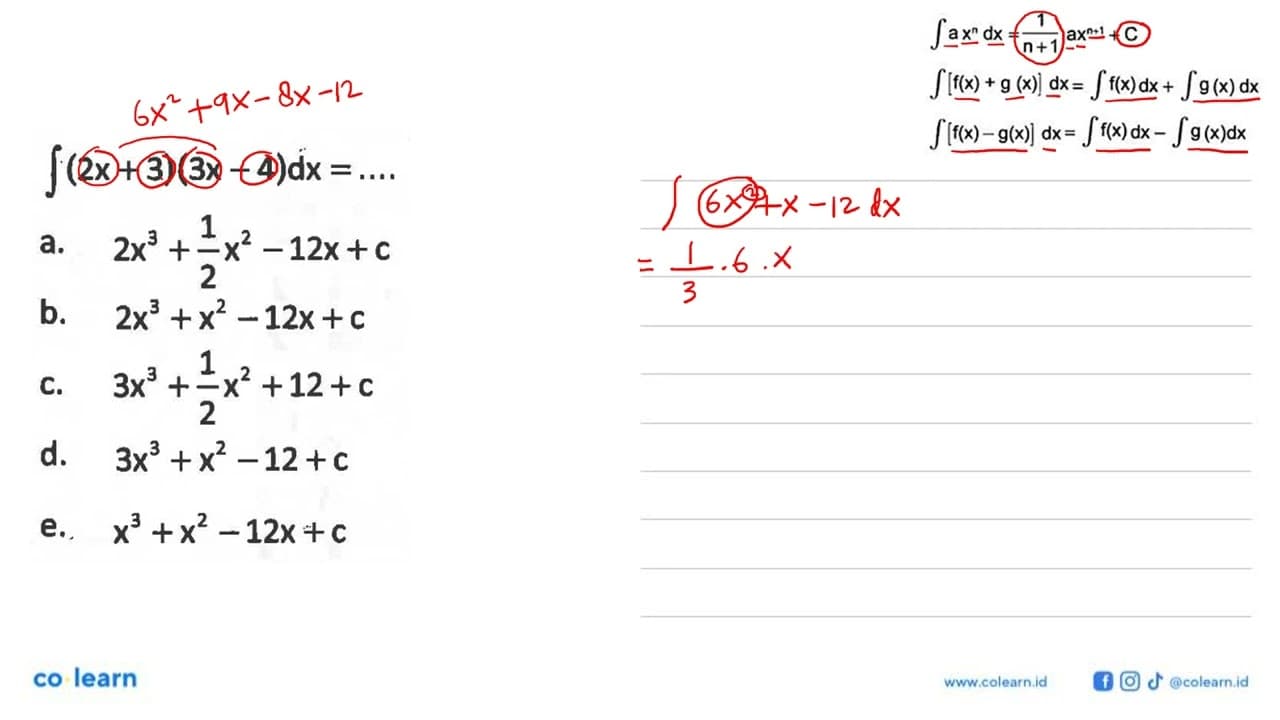 ∫ax^n dx = 1/(n+1) ax^(n+1) + C
∫[f(x) + g (x)] dx = ∫f(x) dx + ∫g (x) dx
∫[f(x) – g(x)] dx = ∫f(x) dx – ∫g (x)dx
6x² + 9x – 8x – 12
∫(2x + 3)(3x – 4)dx = ....
a. 2x³ + 1/2 x² – 12x + c
b. 2x³ + x² – 12x + c
c. 3x³ + 1/2 x² + 12 + c
d. 3x³ + x² – 12 + c
e. x³ + x² – 12x + c
∫ 6x² + x – 12 dx
= 1/3 . 6 . x
co learn
www.colearn.id
@colearn.id